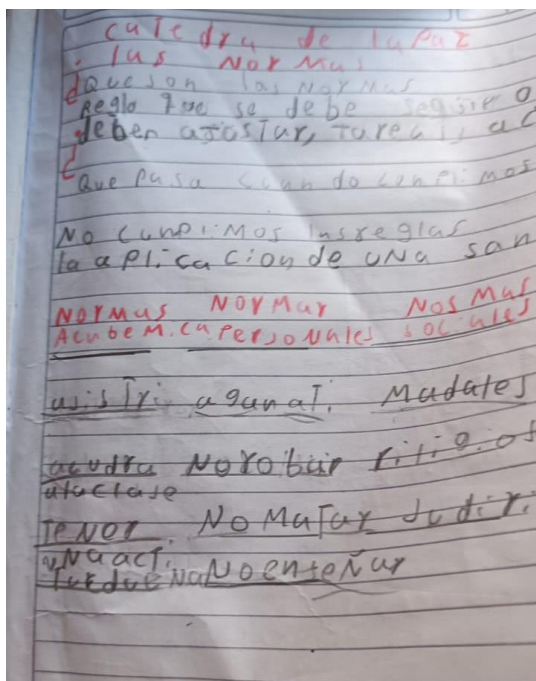 catedra de la paz
las Normas
¿Que son las Normas
Regla que se debe seguir o
deben ajustar, tareas, ac
¿
Que pasa cuando cunplimos
No cunplimos las reglas
la aplicacion de una san
Normas Normar Nosmas
Acabemica personales sociales
asistri aganat. Madates
acudra No robar
ala clase
Tenor. No Matar Judiri
una act.
No enteñar